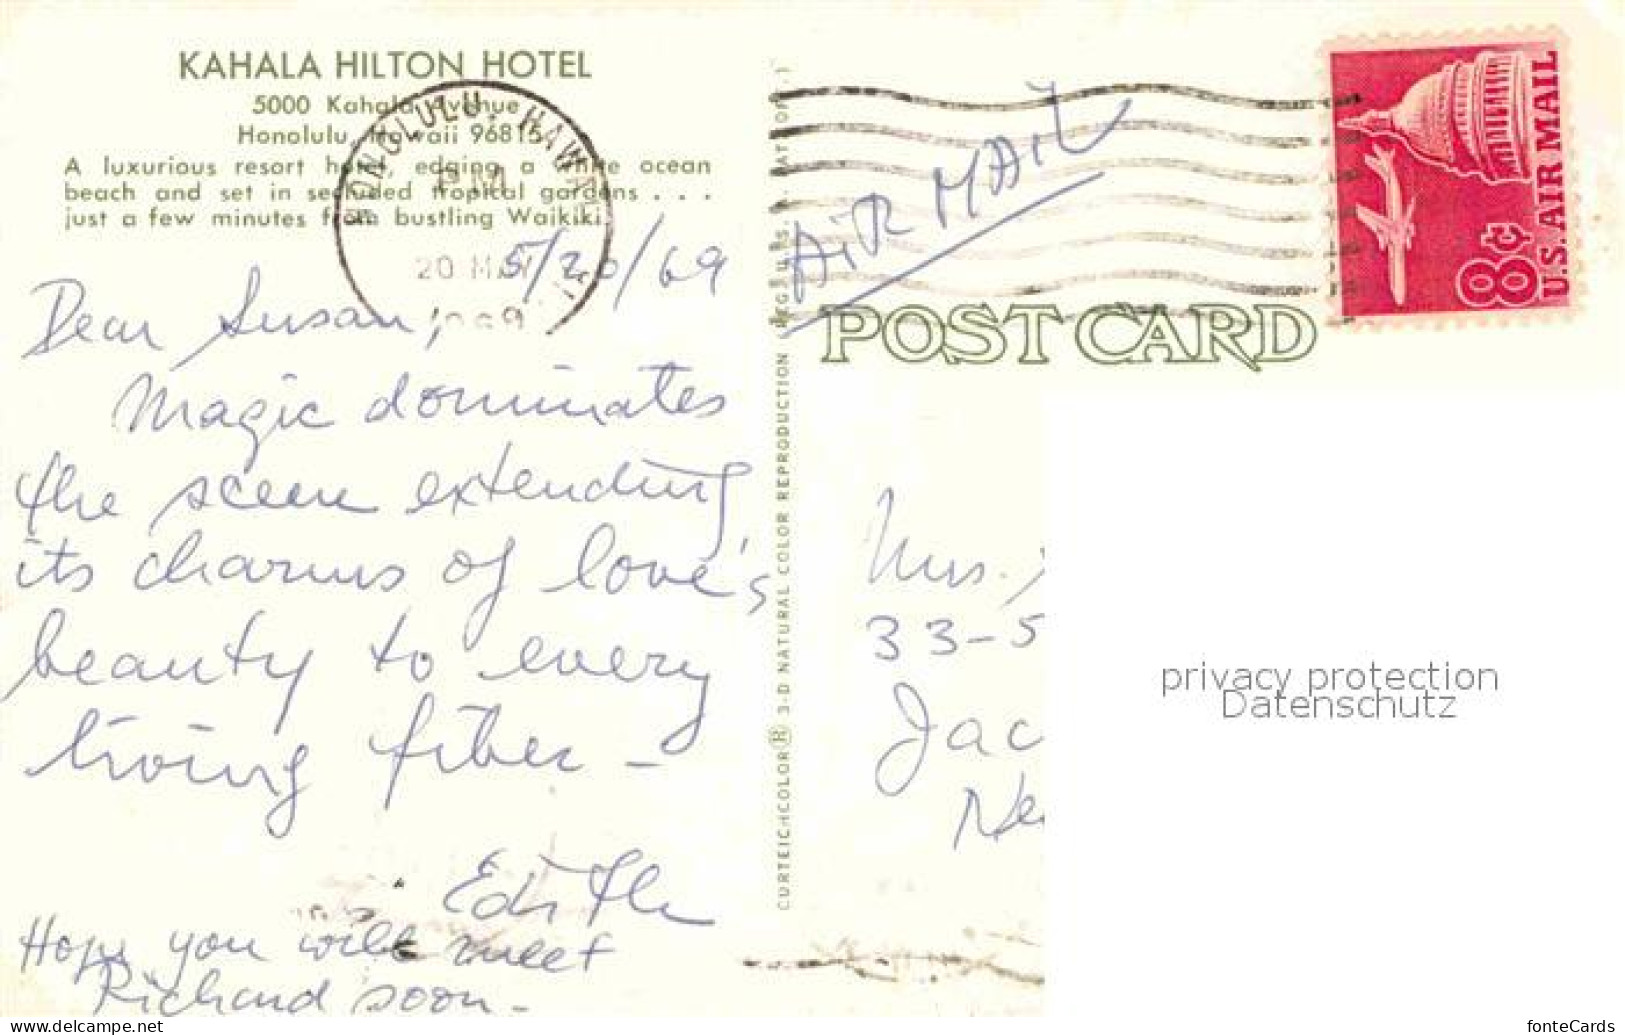 KAHALA HILTON HOTEL
5000 Kahala Avenue
Honolulu, Hawaii 96815
A luxurious resort hotel, edging a white ocean
beach and set in secluded tropical gardens . . .
just a few minutes from bustling Waikiki.
HONOLULU, HAWAII
PM
20 MAY
1969
5/20/69
Dear Susan,
Magic dominates
the scene extending
its charms of love's
beauty to every
living fiber –
Edith
Hope you will meet
Richard soon –
CURTEICHCOLOR® 3-D NATURAL COLOR REPRODUCTION (REG'D U.S.A. PAT. OFF.)
AIR MAIL
U.S. AIR MAIL
8¢
POST CARD
Mrs.
33-5
Jac
Ne
privacy protection
Datenschutz
fonteCards